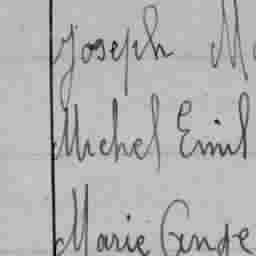 Joseph M
Michel Emil
Marie Ange